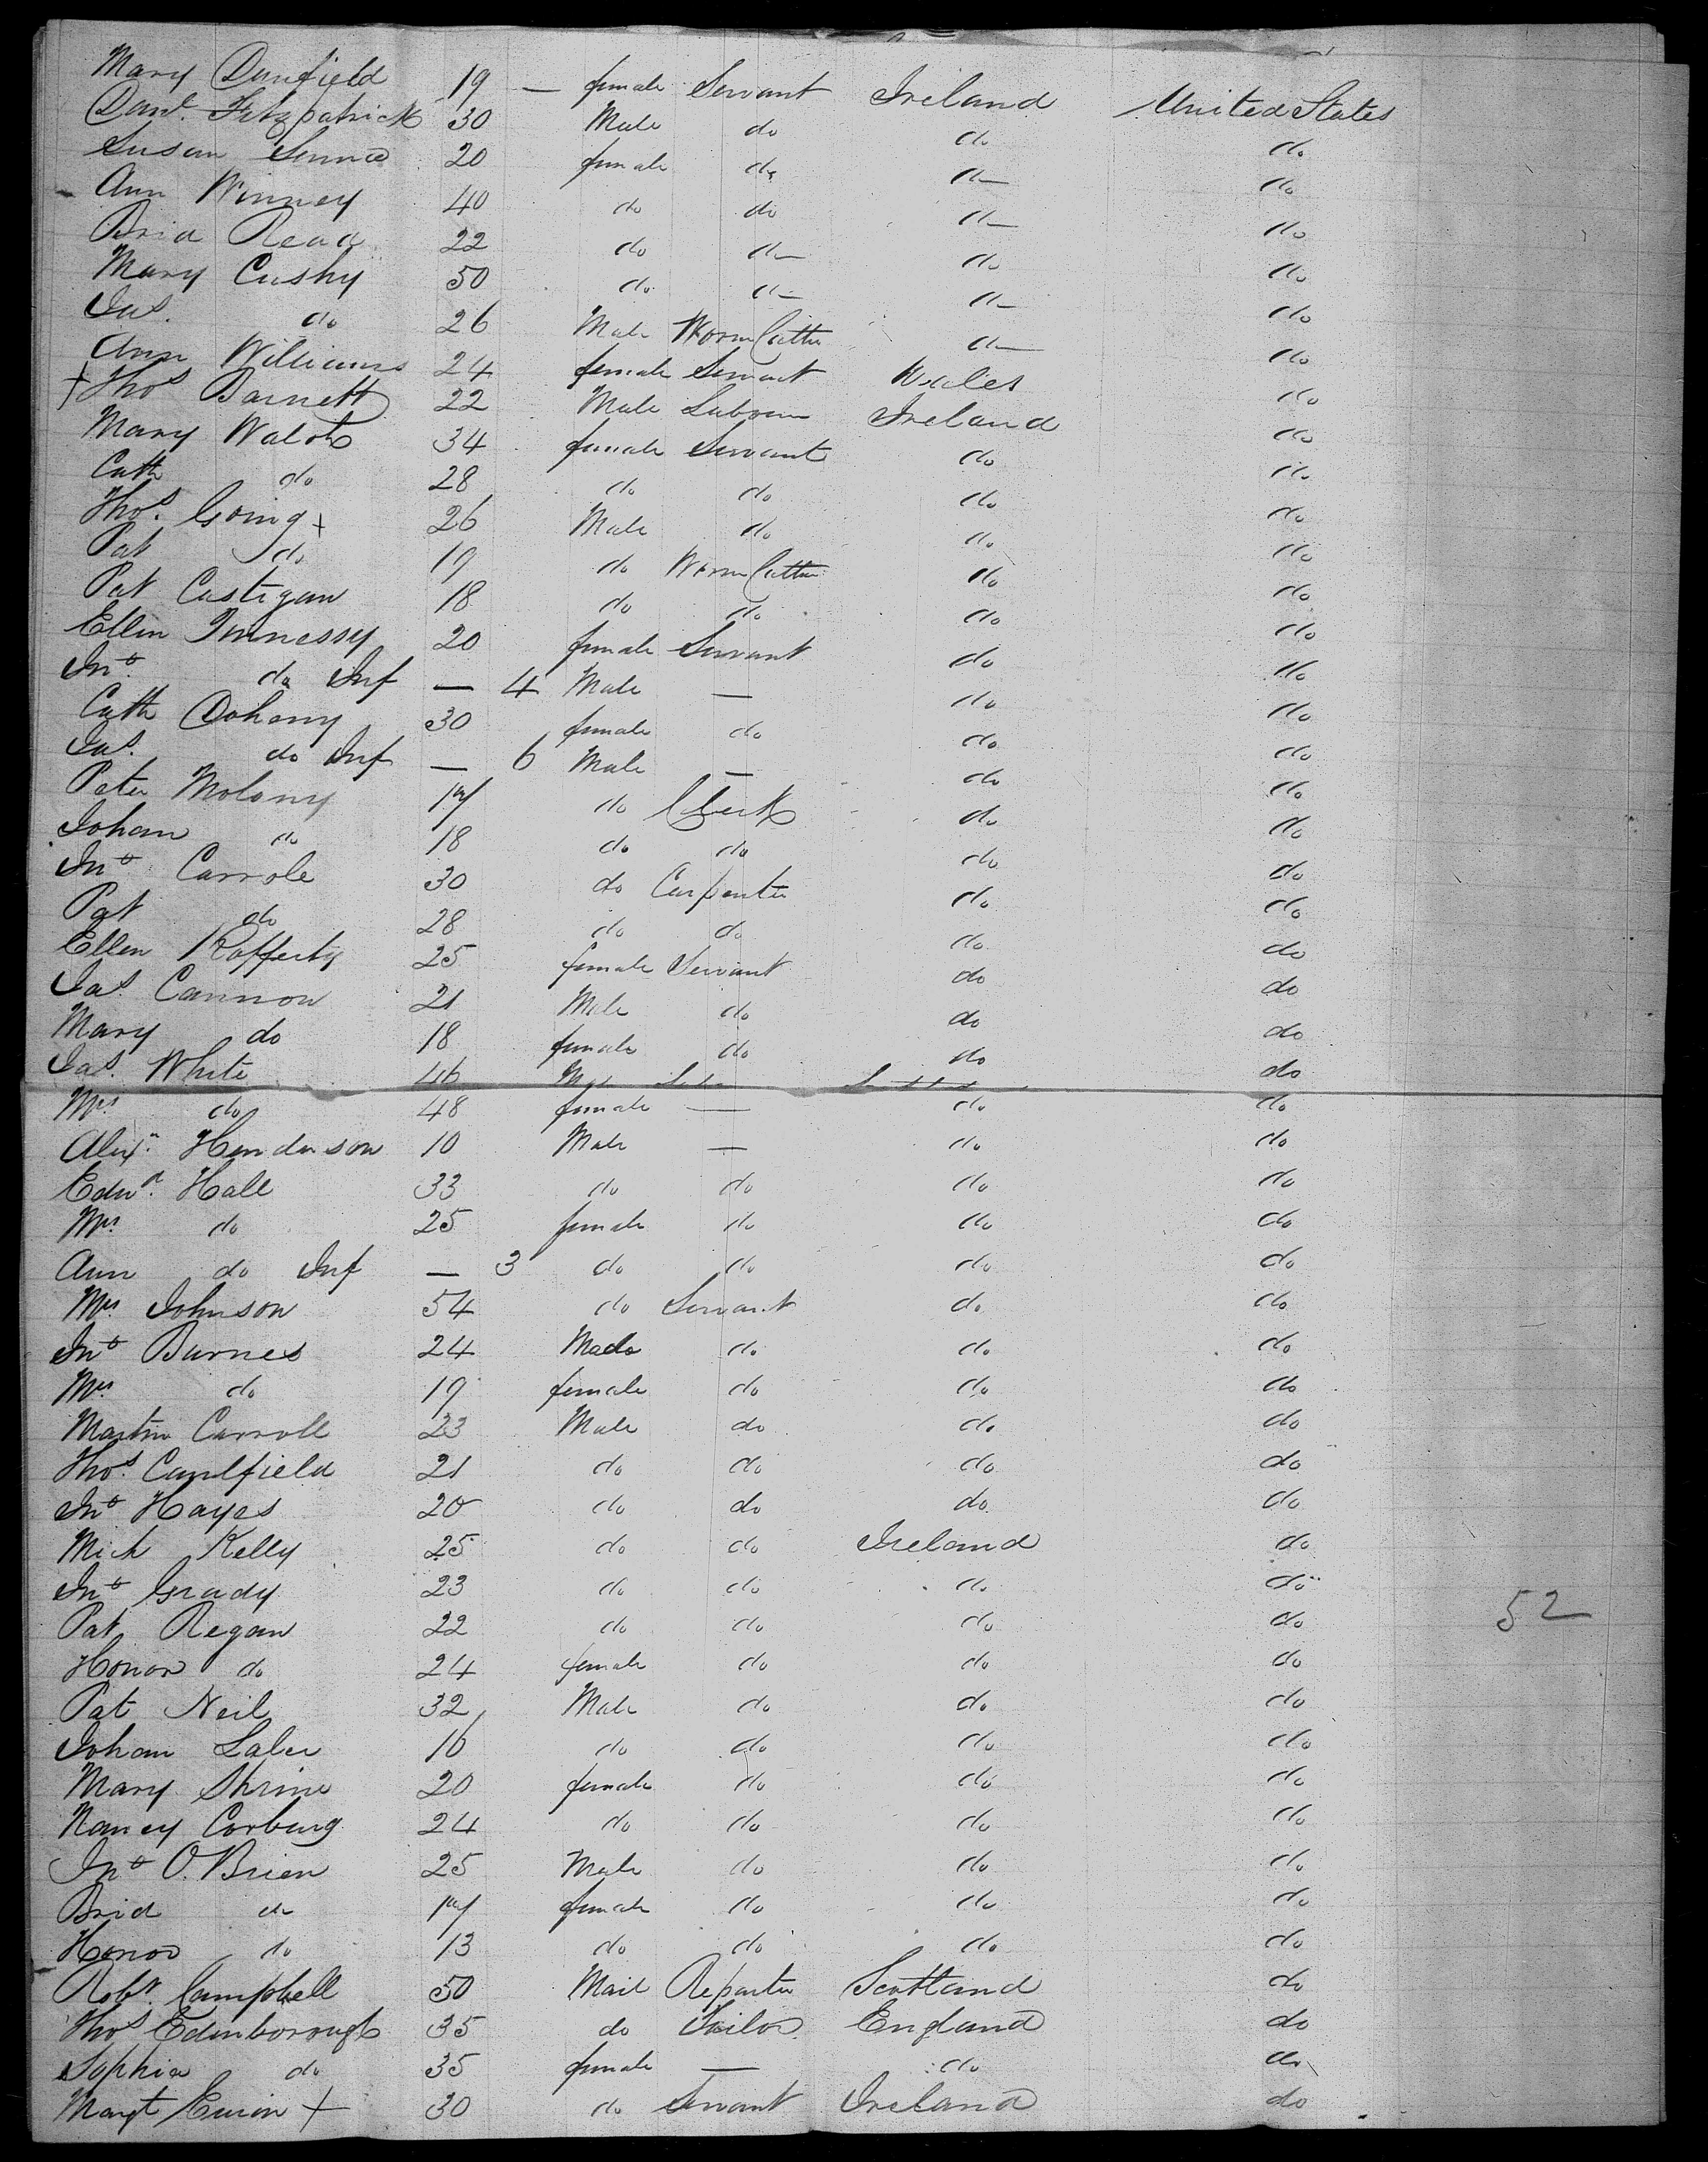 Mary Dunfield 19 — female Servant Ireland United States
Danl. Fitzpatrick 30 Male do do do
Susan 20 female do do do
Ann Winney 40 do do do do
Brid Read 22 do do do do
Mary Cushy 50 do do do do
Jas. do 26 Male do do
Ann Williams 24 female Servant Wales do
+ Thos Barnett 22 Male Labourer Ireland do
Mary Walsh 34 female Servant do do
Cath do 28 do do do do
Thos. Going + 26 Male do do do
Pat do 19 do do do
Pat Costigan 18 do do do do
Ellen 20 female Servant do do
Jno. do Inf — 4 Male — do do
Cath Doheny 30 female do do do
Jas. do Inf — 6 Male — do do
Peter Molony 17 do Clerk do do
Johan do 18 do do do do
Jno Carrole 30 do Carpenter do do
Pat do 28 do do do do
Ellen Rafferty 25 female Servant do do
Jas. Cannon 21 Male do do do
Mary do 18 female do do do
Jas. White 46 do
Mrs do 48 female — do do
Alexr. Henderson 10 Male — do do
Edwd. Hall 33 do do do do
Mrs. do 25 female do do do
Ann do Inf — 3 do do do do
Mrs Johnson 54 do Servant do do
Jno Barnes 24 Male do do do
Mrs do 19 female do do do
Martin Carroll 23 Male do do do
Thos. Caulfield 21 do do do do
Jno Hayes 20 do do do do
Mich Kelly 25 do do Ireland do
Jno Grady 23 do do do do
Pat Regan 22 do do do do 52
Honor do 24 female do do do
Pat Neil 32 Male do do do
Johan Laler 16 do do do do
Mary Shrine 20 female do do do
Nancy 24 do do do do
Jno O.Brien 25 Male do do do
Brid do 17 female do do do
Honor do 13 do do do do
Robt. Campbell 50 Mail Reporter Scotland do
Thos Edenborough 35 do Tailor England do
Sophia do 35 female — do do
Margt + 30 do Servant Ireland do